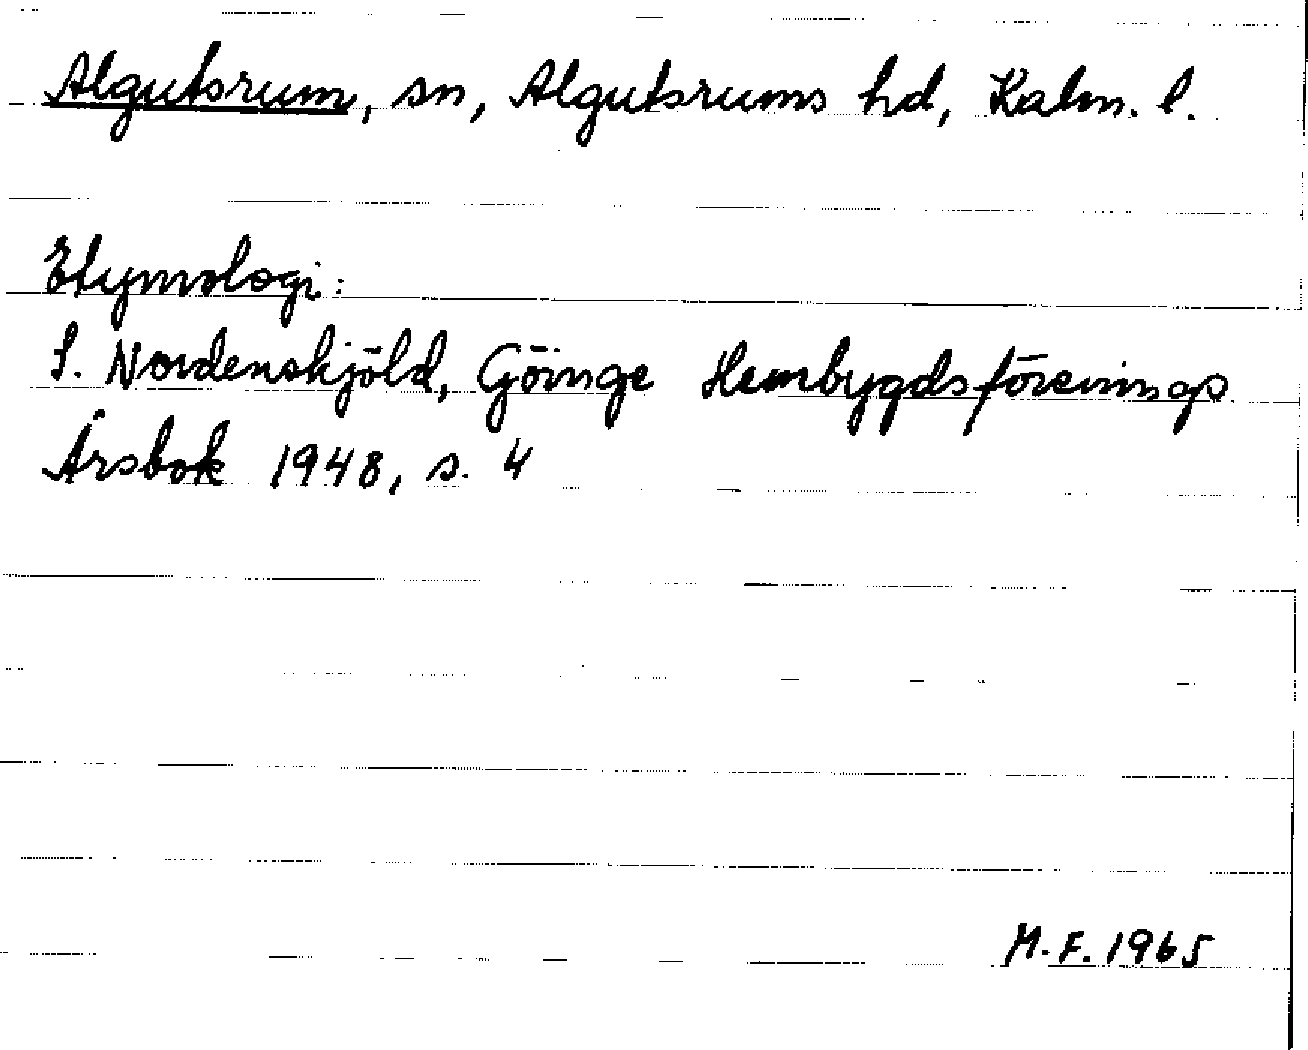 Algutsrum, sn, Algutsrums hd, Kalm. l.
Etymologi:
S. Nordenskjöld, Göinge Hembygdsförenings
Årsbok 1948, s. 4
M.F. 1965